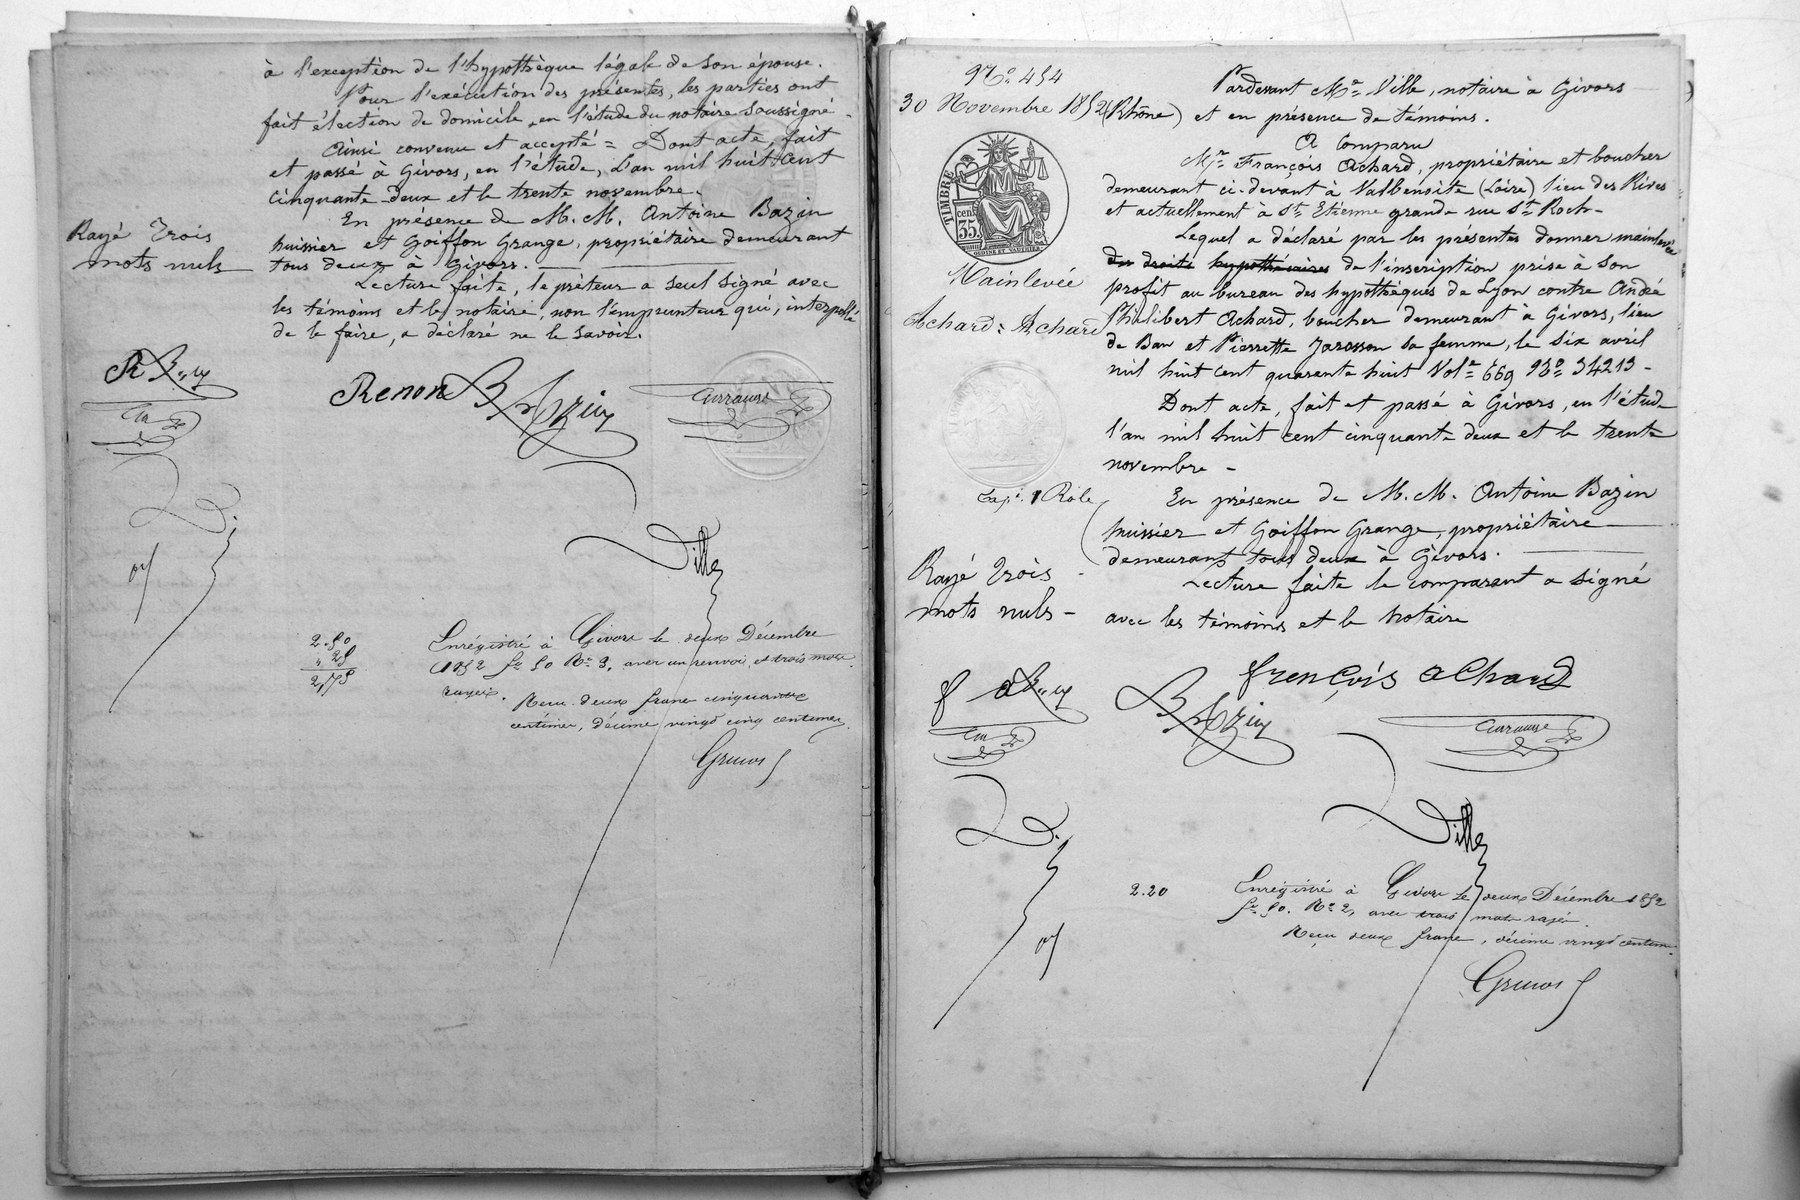 à l'exception de l'hypothèque légale de son épouse.
Pour l'exécution des présentes, les parties ont
fait élection de domicile, en l'étude du notaire soussigné.
Ainsi convenu et accepté = Dont acte, fait
et passé à Givors, en l'étude, L'an mil huit cent
cinquante deux et le trente novembre.
En présence de M.M. Antoine Bazin
huissier et Goiffon Grange, propriétaire demeurant
tous deux à Givors.
Lecture faite, le prêteur a seul signé avec
les témoins et le notaire, non l'emprunteur qui, interpellé
de le faire, a déclaré ne le savoir.
Rayé trois
mots nuls
Renon Bazin
Ville
2.50
" 25
2,75
Enrégistré à Givors le deux Décembre
1852 f° 50 R° 3, avec un renvoi et trois mots
rayés.
Reçu deux francs cinquante
centimes, décime vingt cinq centimes.
N° 454
30 Novembre 1852
TIMBRE
35 cent
Mainlevée
Achard = Achard
1 Rôle
Rayé trois
mots nuls -
Pardevant Me Ville, notaire à Givors
(Rhône) et en présence de témoins.
A Comparu
Mr François Achard, propriétaire et boucher
demeurant ci-devant à Valbenoite (Loire) lieu des Rives
et actuellement à St Etienne grande rue St Roch-
Lequel a déclaré par les présentes donner mainlevée
des droits hypothécaires de l'inscription prise à son
profit au bureau des hypothèques de Lyon contre André
Philibert Achard, boucher demeurant à Givors, lieu
de Ban et Pierrette Jarosson sa femme, le six avril
mil huit cent quarante huit Vole 669 N° 34213 -
Dont acte, fait et passé à Givors, en l'étude
l'an mil huit cent cinquante deux et le trente
novembre -
En présence de M.M. Antoine Bazin
huissier et Goiffon Grange, propriétaire
demeurant tous deux à Givors.
Lecture faite le comparant a signé
avec les témoins et le notaire
françois achard
Bazin
Ville
2.20
Enrégistré à Givors le deux Décembre 1852
f° 50. R° 2, avec trois mots rayés.
Reçu deux francs, décime vingt centimes.